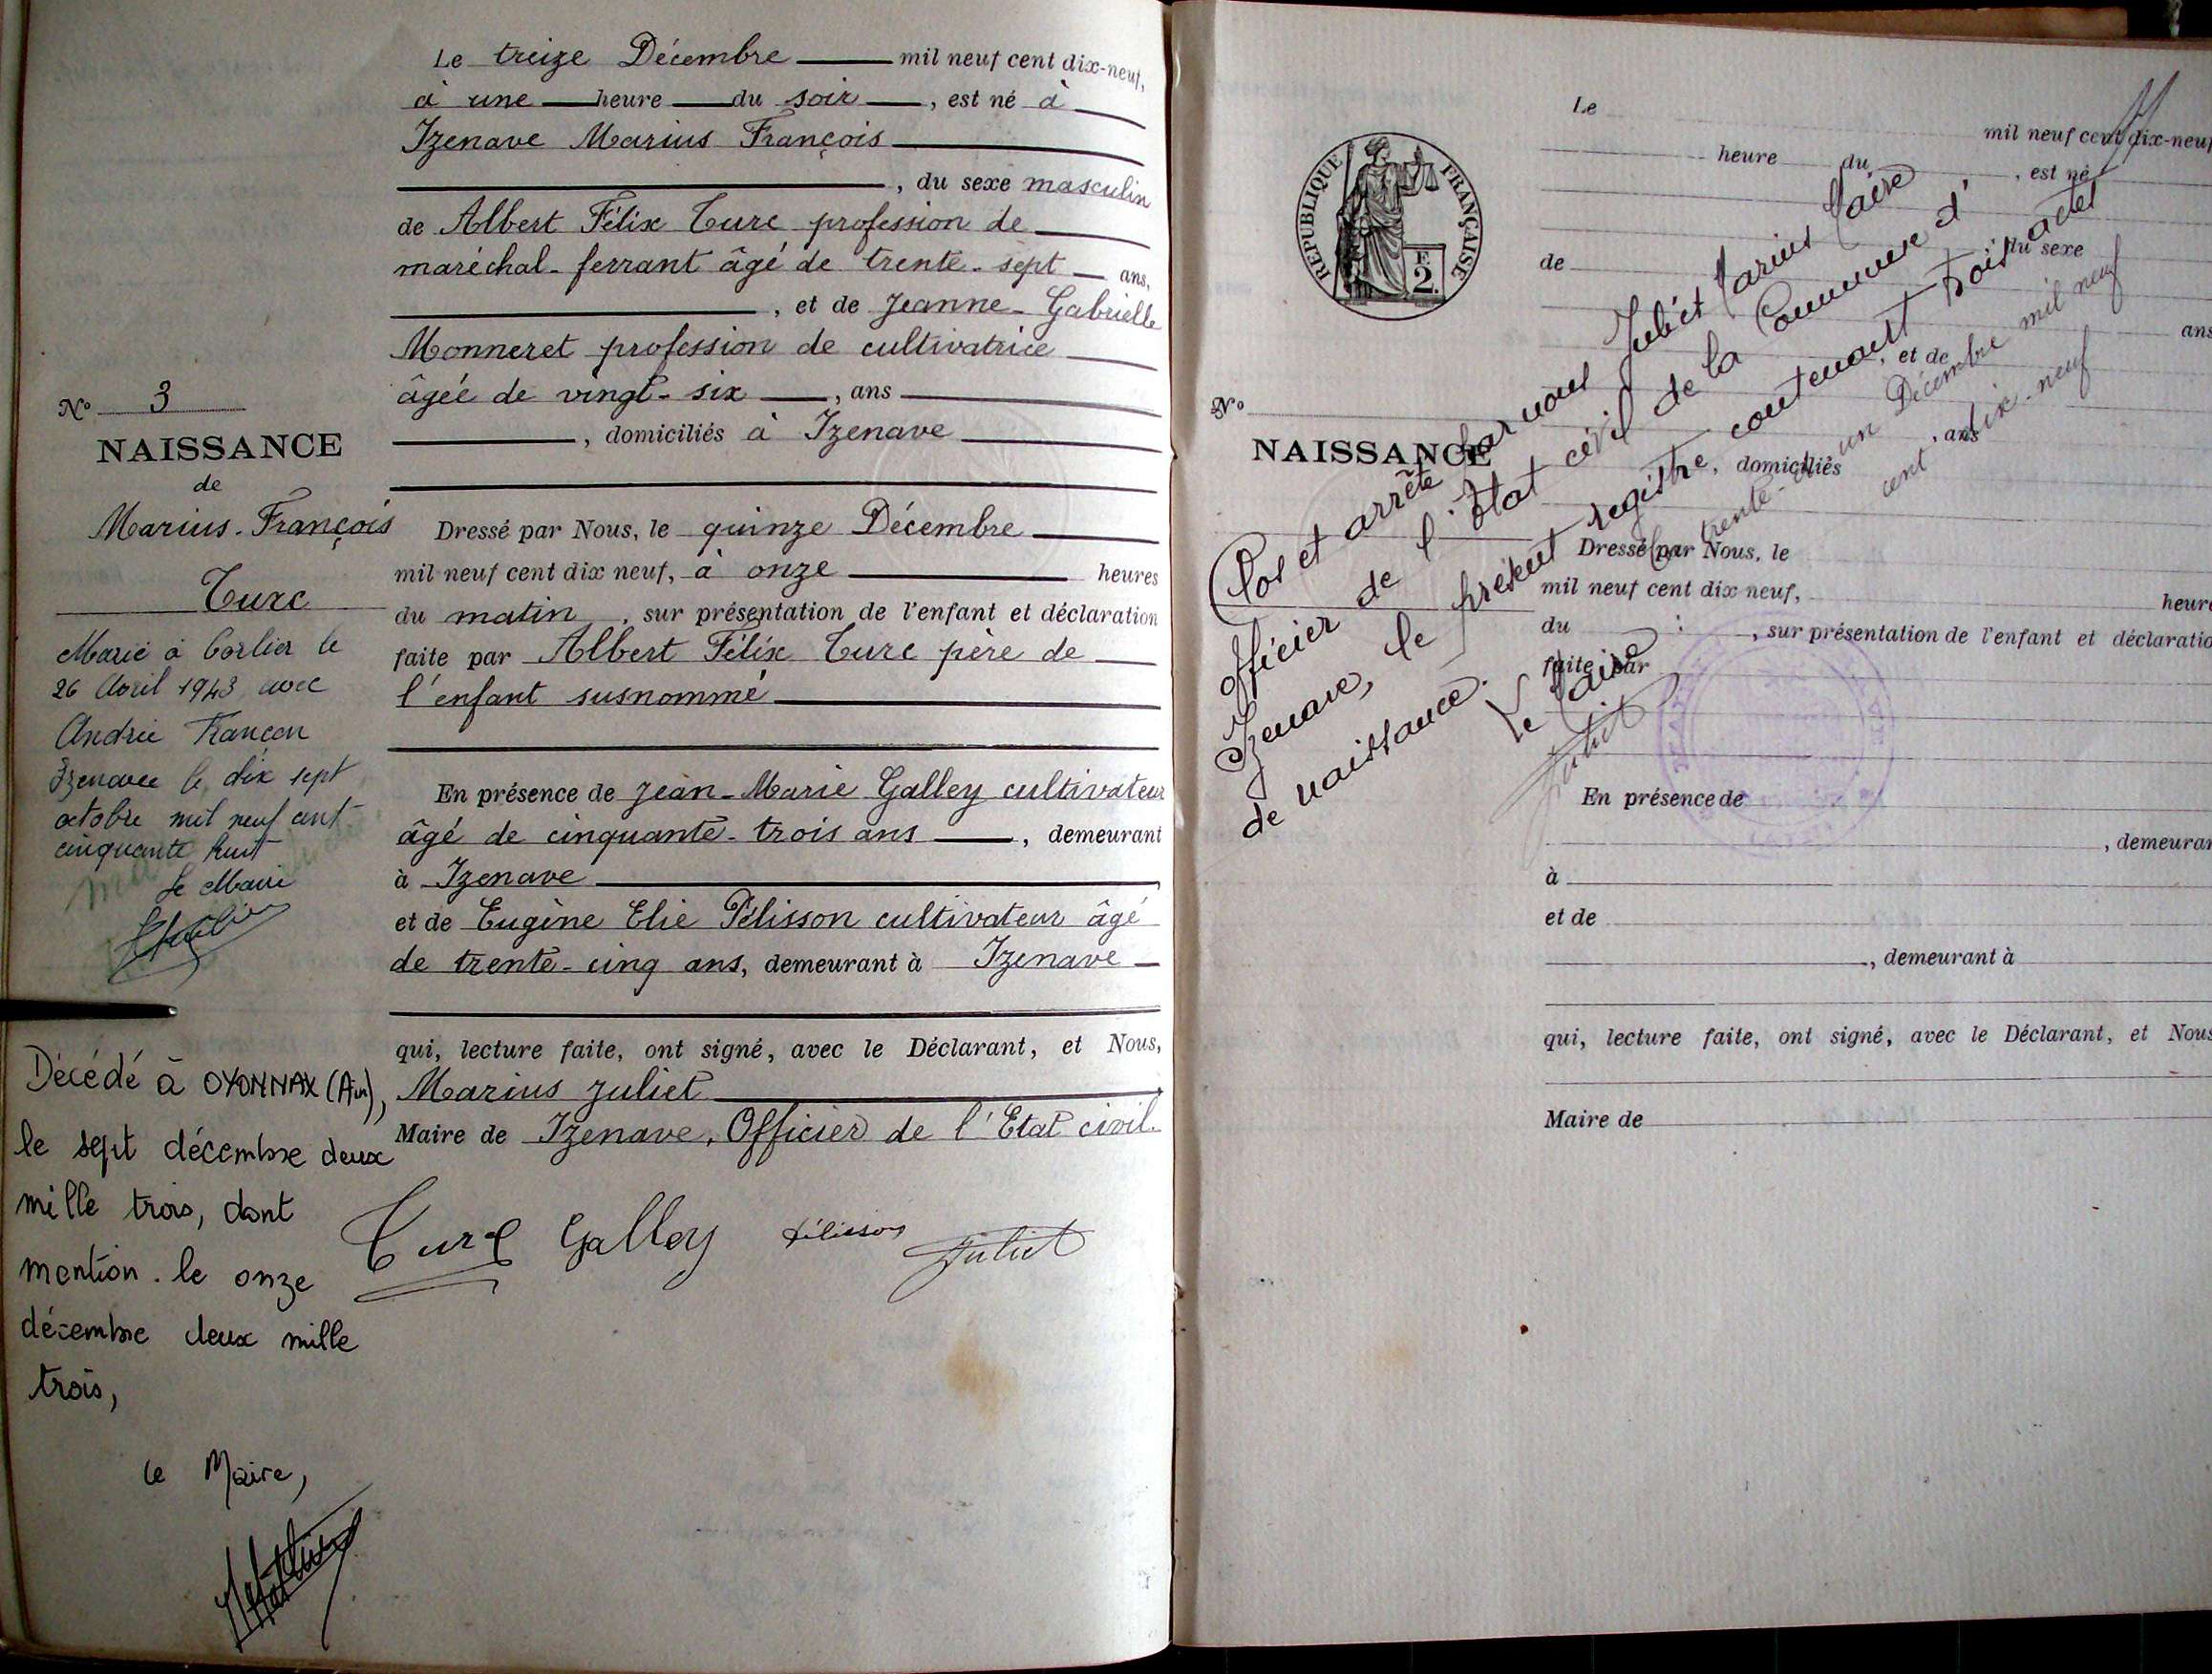 Le treize Décembre mil neuf cent dix-neuf,
à une heure du soir, est né à
Izenave Marius François
, du sexe masculin
de Albert Félix Turc profession de
maréchal-ferrant âgé de trente-sept ans,
, et de Jeanne-Gabrielle
Monneret profession de cultivatrice
âgée de vingt-six, ans
, domiciliés à Izenave
N° 3
NAISSANCE
de
Marius-François
Turc
Marié à Corlier le
26 Avril 1943 avec
Andrée Françon
Izenave le dix sept
octobre mil neuf cent
cinquante huit
Le Maire
Décédé à OYONNAX (Ain),
le sept décembre deux
mille trois, dont
mention. le onze
décembre deux mille
trois,
Le Maire,
Dressé par Nous, le quinze Décembre
mil neuf cent dix neuf, à onze heures
du matin, sur présentation de l'enfant et déclaration
faite par Albert Félix Turc père de
l'enfant susnommé
En présence de Jean-Marie Galley cultivateur
âgé de cinquante-trois ans, demeurant
à Izenave,
et de Eugène Elie Pélisson cultivateur âgé
de trente-cinq ans, demeurant à Izenave
qui, lecture faite, ont signé, avec le Déclarant, et Nous,
Marius Juliet
Maire de Izenave, Officier de l'Etat civil.
Turc Galley Pélisson Juliet
RÉPUBLIQUE FRANÇAISE
E
2.
Le
mil neuf cent dix-neuf
heure du, est né
du sexe
de
ans
, et de
, ans
, domiciliés
N°
NAISSANCE
Clos et arrêté par nous Juliet Marius Maire
officier de l'Etat civil de la Commune d'
Izenave, le présent registre, contenant trois actes
de naissance.
Le trente-et-un Décembre mil neuf
cent dix-neuf
Le Maire
Juliet
Dressé par Nous, le
mil neuf cent dix neuf, heure
du, sur présentation de l'enfant et déclaratio
faite par
En présence de
, demeuran
à
et de
, demeurant à
qui, lecture faite, ont signé, avec le Déclarant, et Nous
Maire de